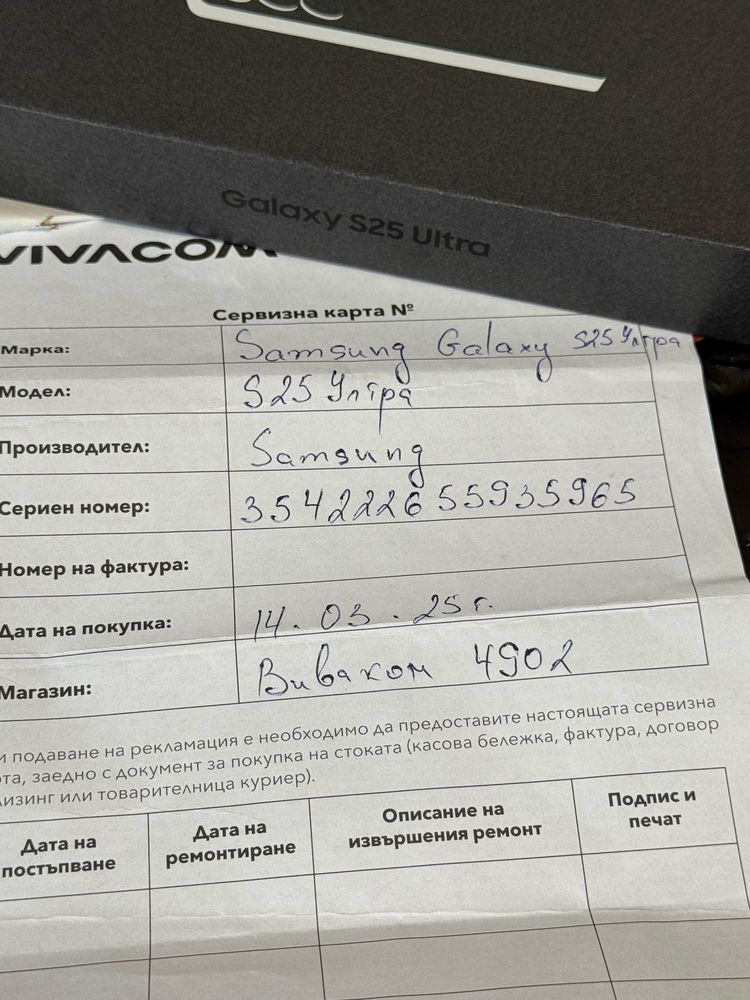 Galaxy S25 Ultra
VIVACOM
Сервизна карта №
Марка: Samsung Galaxy S25 Ултра
Модел: S25 Ултра
Производител: Samsung
Сериен номер: 354222655935965
Номер на фактура:
Дата на покупка: 14.03.25г.
Магазин: Виваком 4902
и подаване на рекламация е необходимо да предоставите настоящата сервизна
та, заедно с документ за покупка на стоката (касова бележка, фактура, договор
изинг или товарителница куриер).
Дата на постъпване
Дата на ремонтиране
Описание на извършения ремонт
Подпис и печат